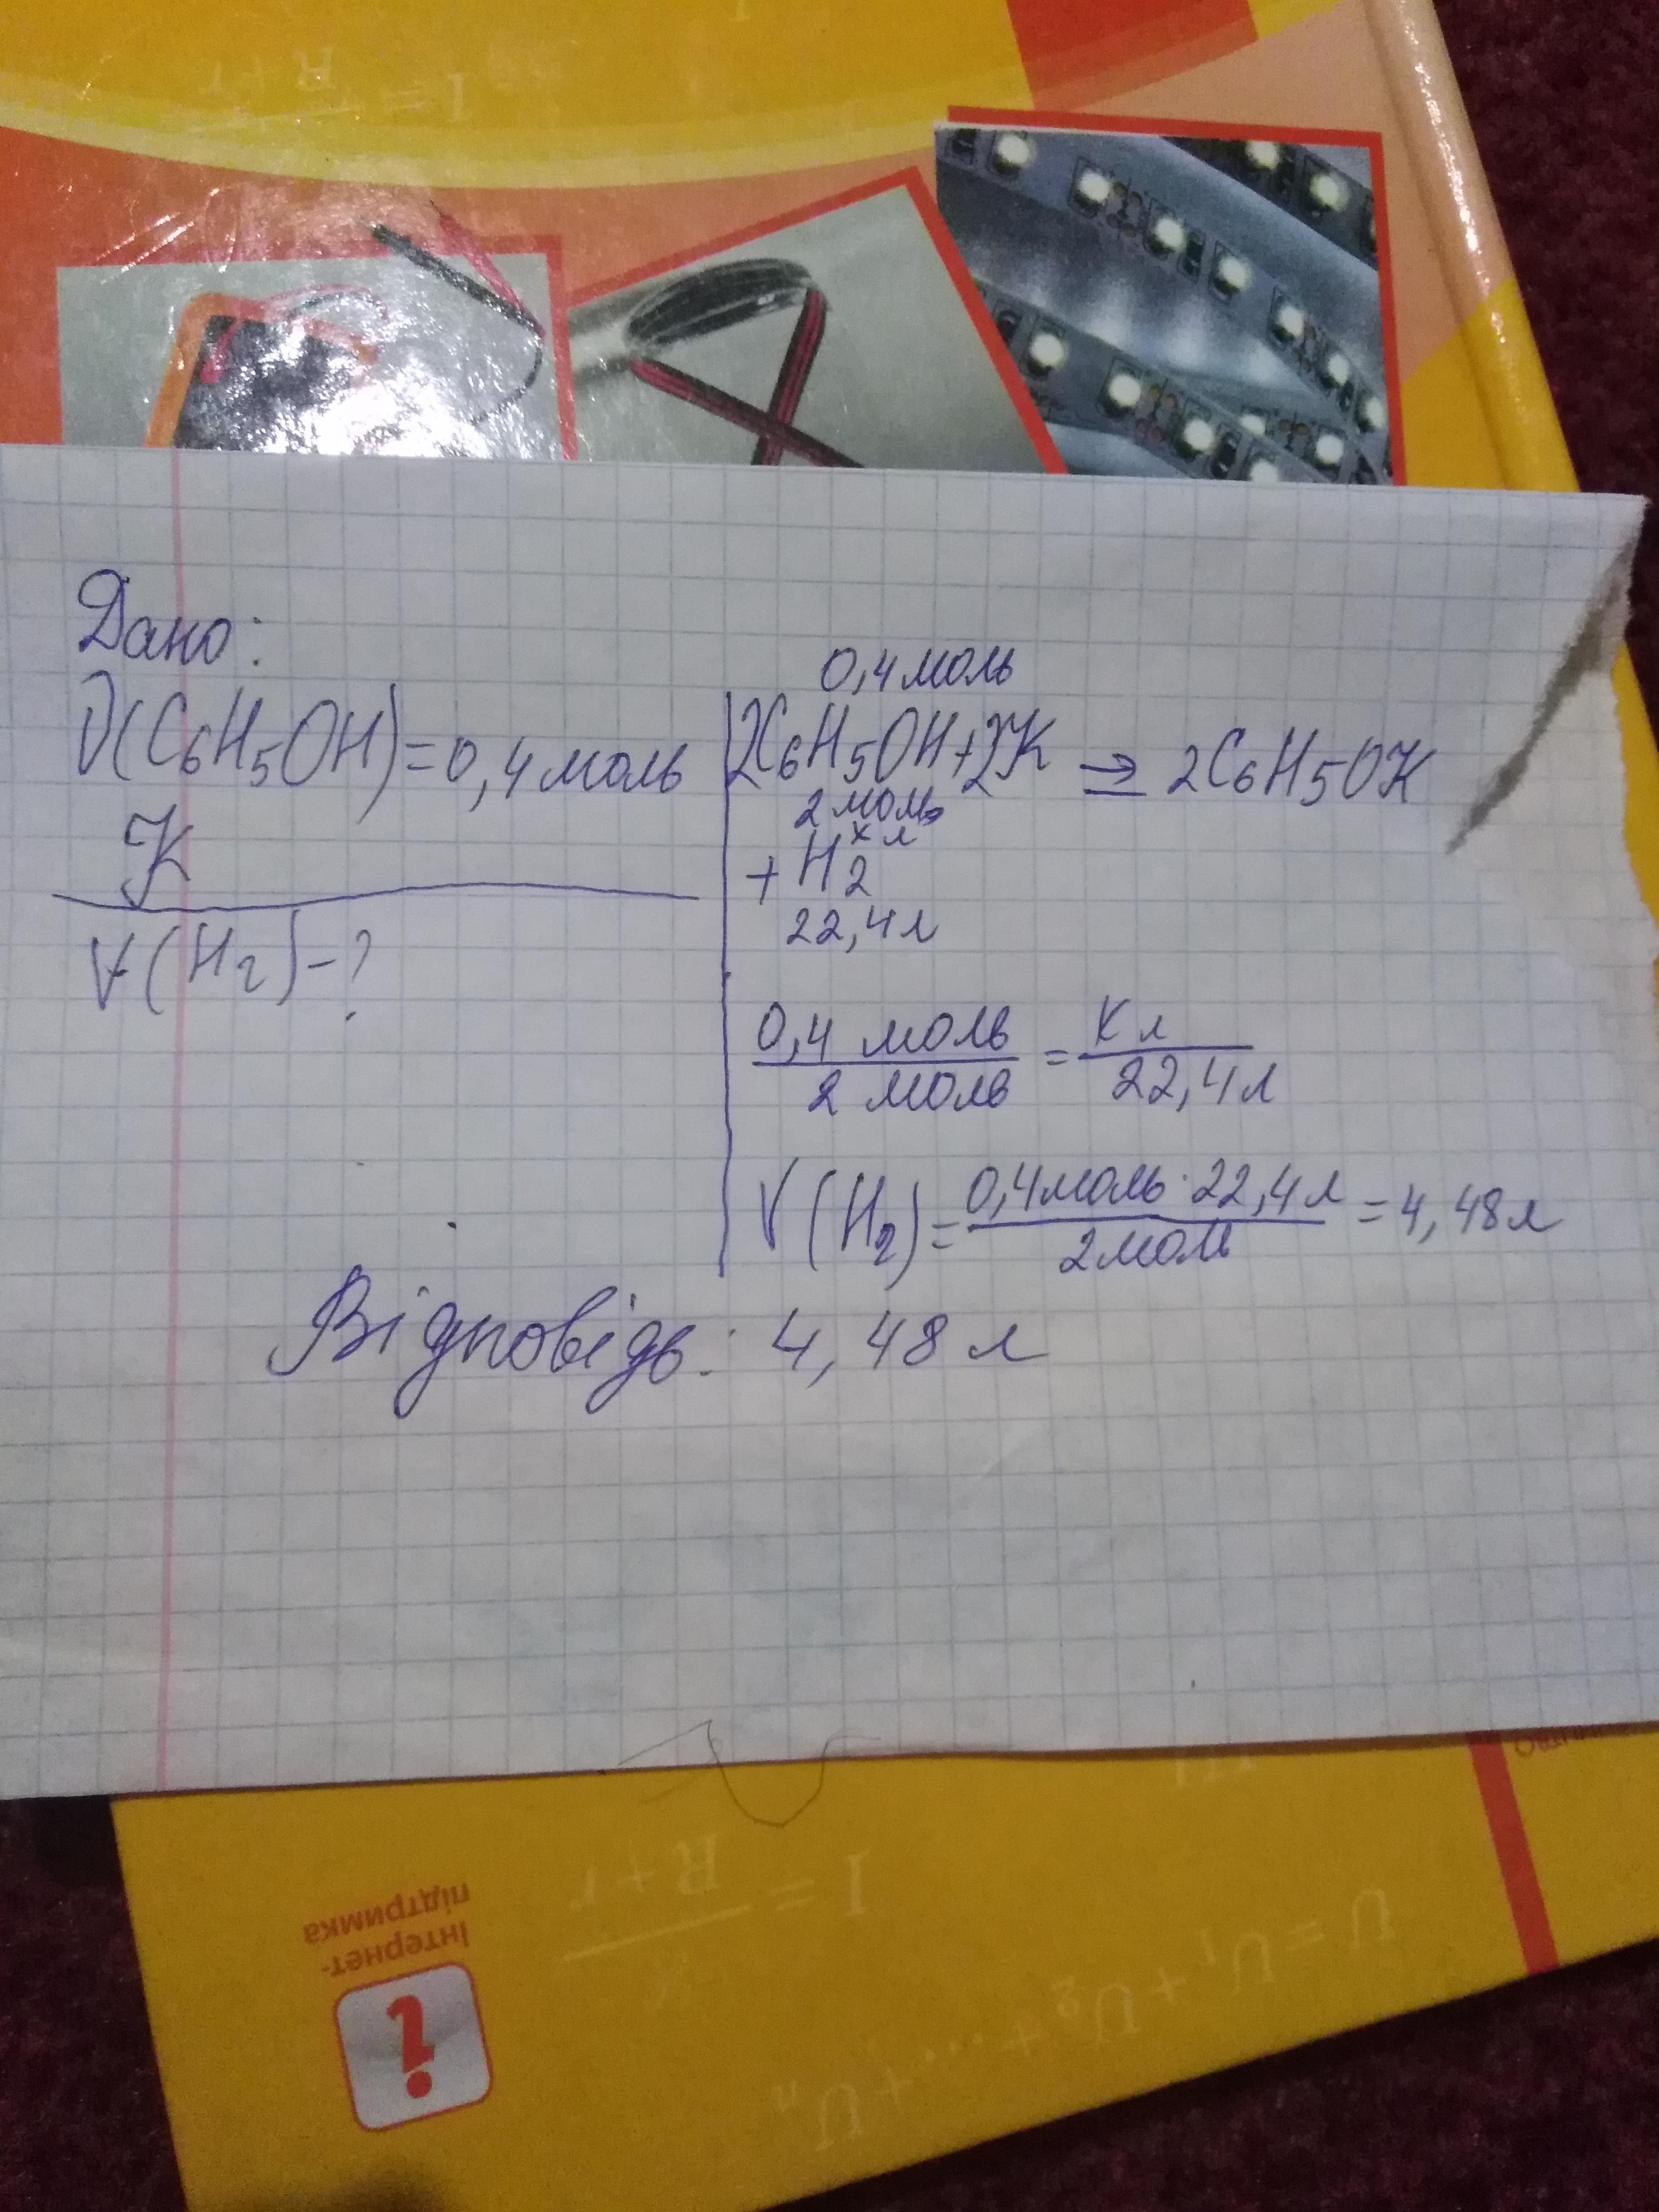 I = R + r
Дано:
ν(C₆H₅OH) = 0,4 моль
K
V(H₂) - ?
0,4 моль
2C₆H₅OH + 2K → 2C₆H₅OK
2 моль
x л
+ H₂
22,4 л
0,4 моль / 2 моль = x л / 22,4 л
V(H₂) = 0,4 моль · 22,4 л / 2 моль = 4,48 л
Відповідь: 4,48 л
I = / R + r
U = U₁ + U₂ + ... + Uₙ
Інтернет-
підтримка
i